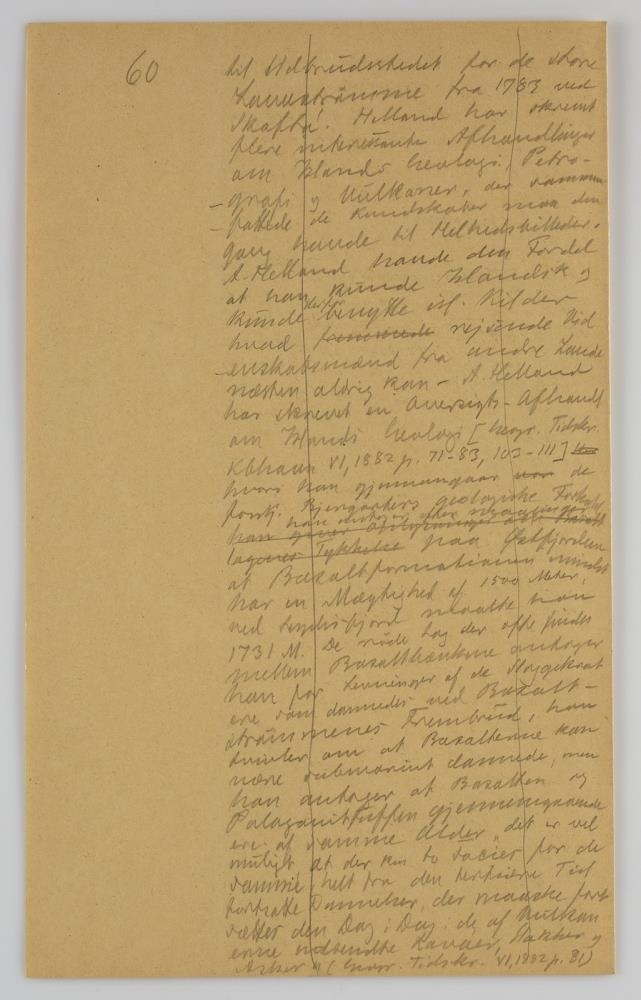 60
til Udbrudsstedet for de store
Lavaströmme fra 1783 ved
Skaftá. Helland har skrevet
flere interessante Afhandlinger
om Islands Geologi, Petro-
grafi og Vulkaner, der sammen
fattede de Kundskaber man den
gang havde til Helhedsbilleder.
A. Helland havde den Fordel
at han kunde Islandsk og
kunde benytte isl. Kilder
hvad rejsende Vid
enskabsmænd fra andre Lande
næsten aldrig kan - A. Helland
har skrevet en Oversigts-Afhandl
om Islands Geologi [Geogr. Tidskr.
Kbhavn VI, 1882 p. 71-83, 103-111]
hvori han gjennemgaar de
forsk. Bjergarters geologiske Forhold
han antager efter Maalinger
han giver
lagenes Tykkelse paa Østfjordene
at Basaltformationen mindst
har en Mægtighed af 1500 Meter,
ved Seydisfjord maalte han
1731 M. De røde Lag der ofte findes
mellem Basaltbænkene antager
han for Levninger af de Slaggekrat
ere som dannedes ved Basalt-
strömmenes Frembrud, han
tvivler om at Basalterne kan
være submarint dannede, men
han antager at Basalten og
Palagonittuffen gjennemgaaende
ere af samme Alder, "det er vel
muligt at der kun to Facier for de
samme helt fra den tertiære Tid
fortsatte Dannelser, der maaske fort
sætter den Dag i Dag: de af Vulkan
erne udsendte Lavaer, Slakker og
Asker" (Geogr. Tidskr. VI, 1882 p. 81)